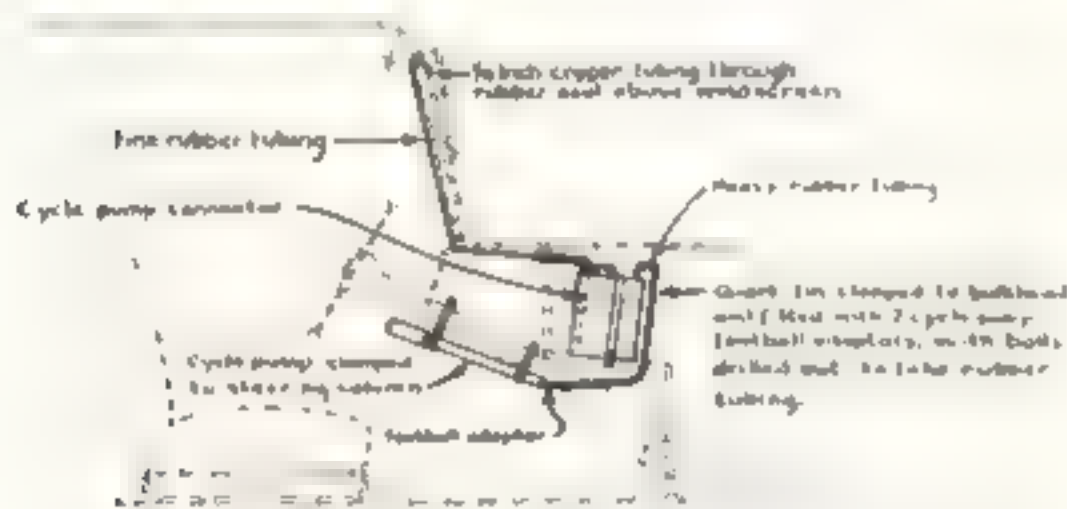 inch copper tubing through
rubber seal above windscreen
Fine rubber tubing
Heavy rubber tubing
Cycle pump connector
Quart tin clamped to bulkhead
and fitted with 2 cycle pump
football adaptors, with both
drilled out to take rubber
tubing.
Cycle pump clamped
to steering column
Football adaptor